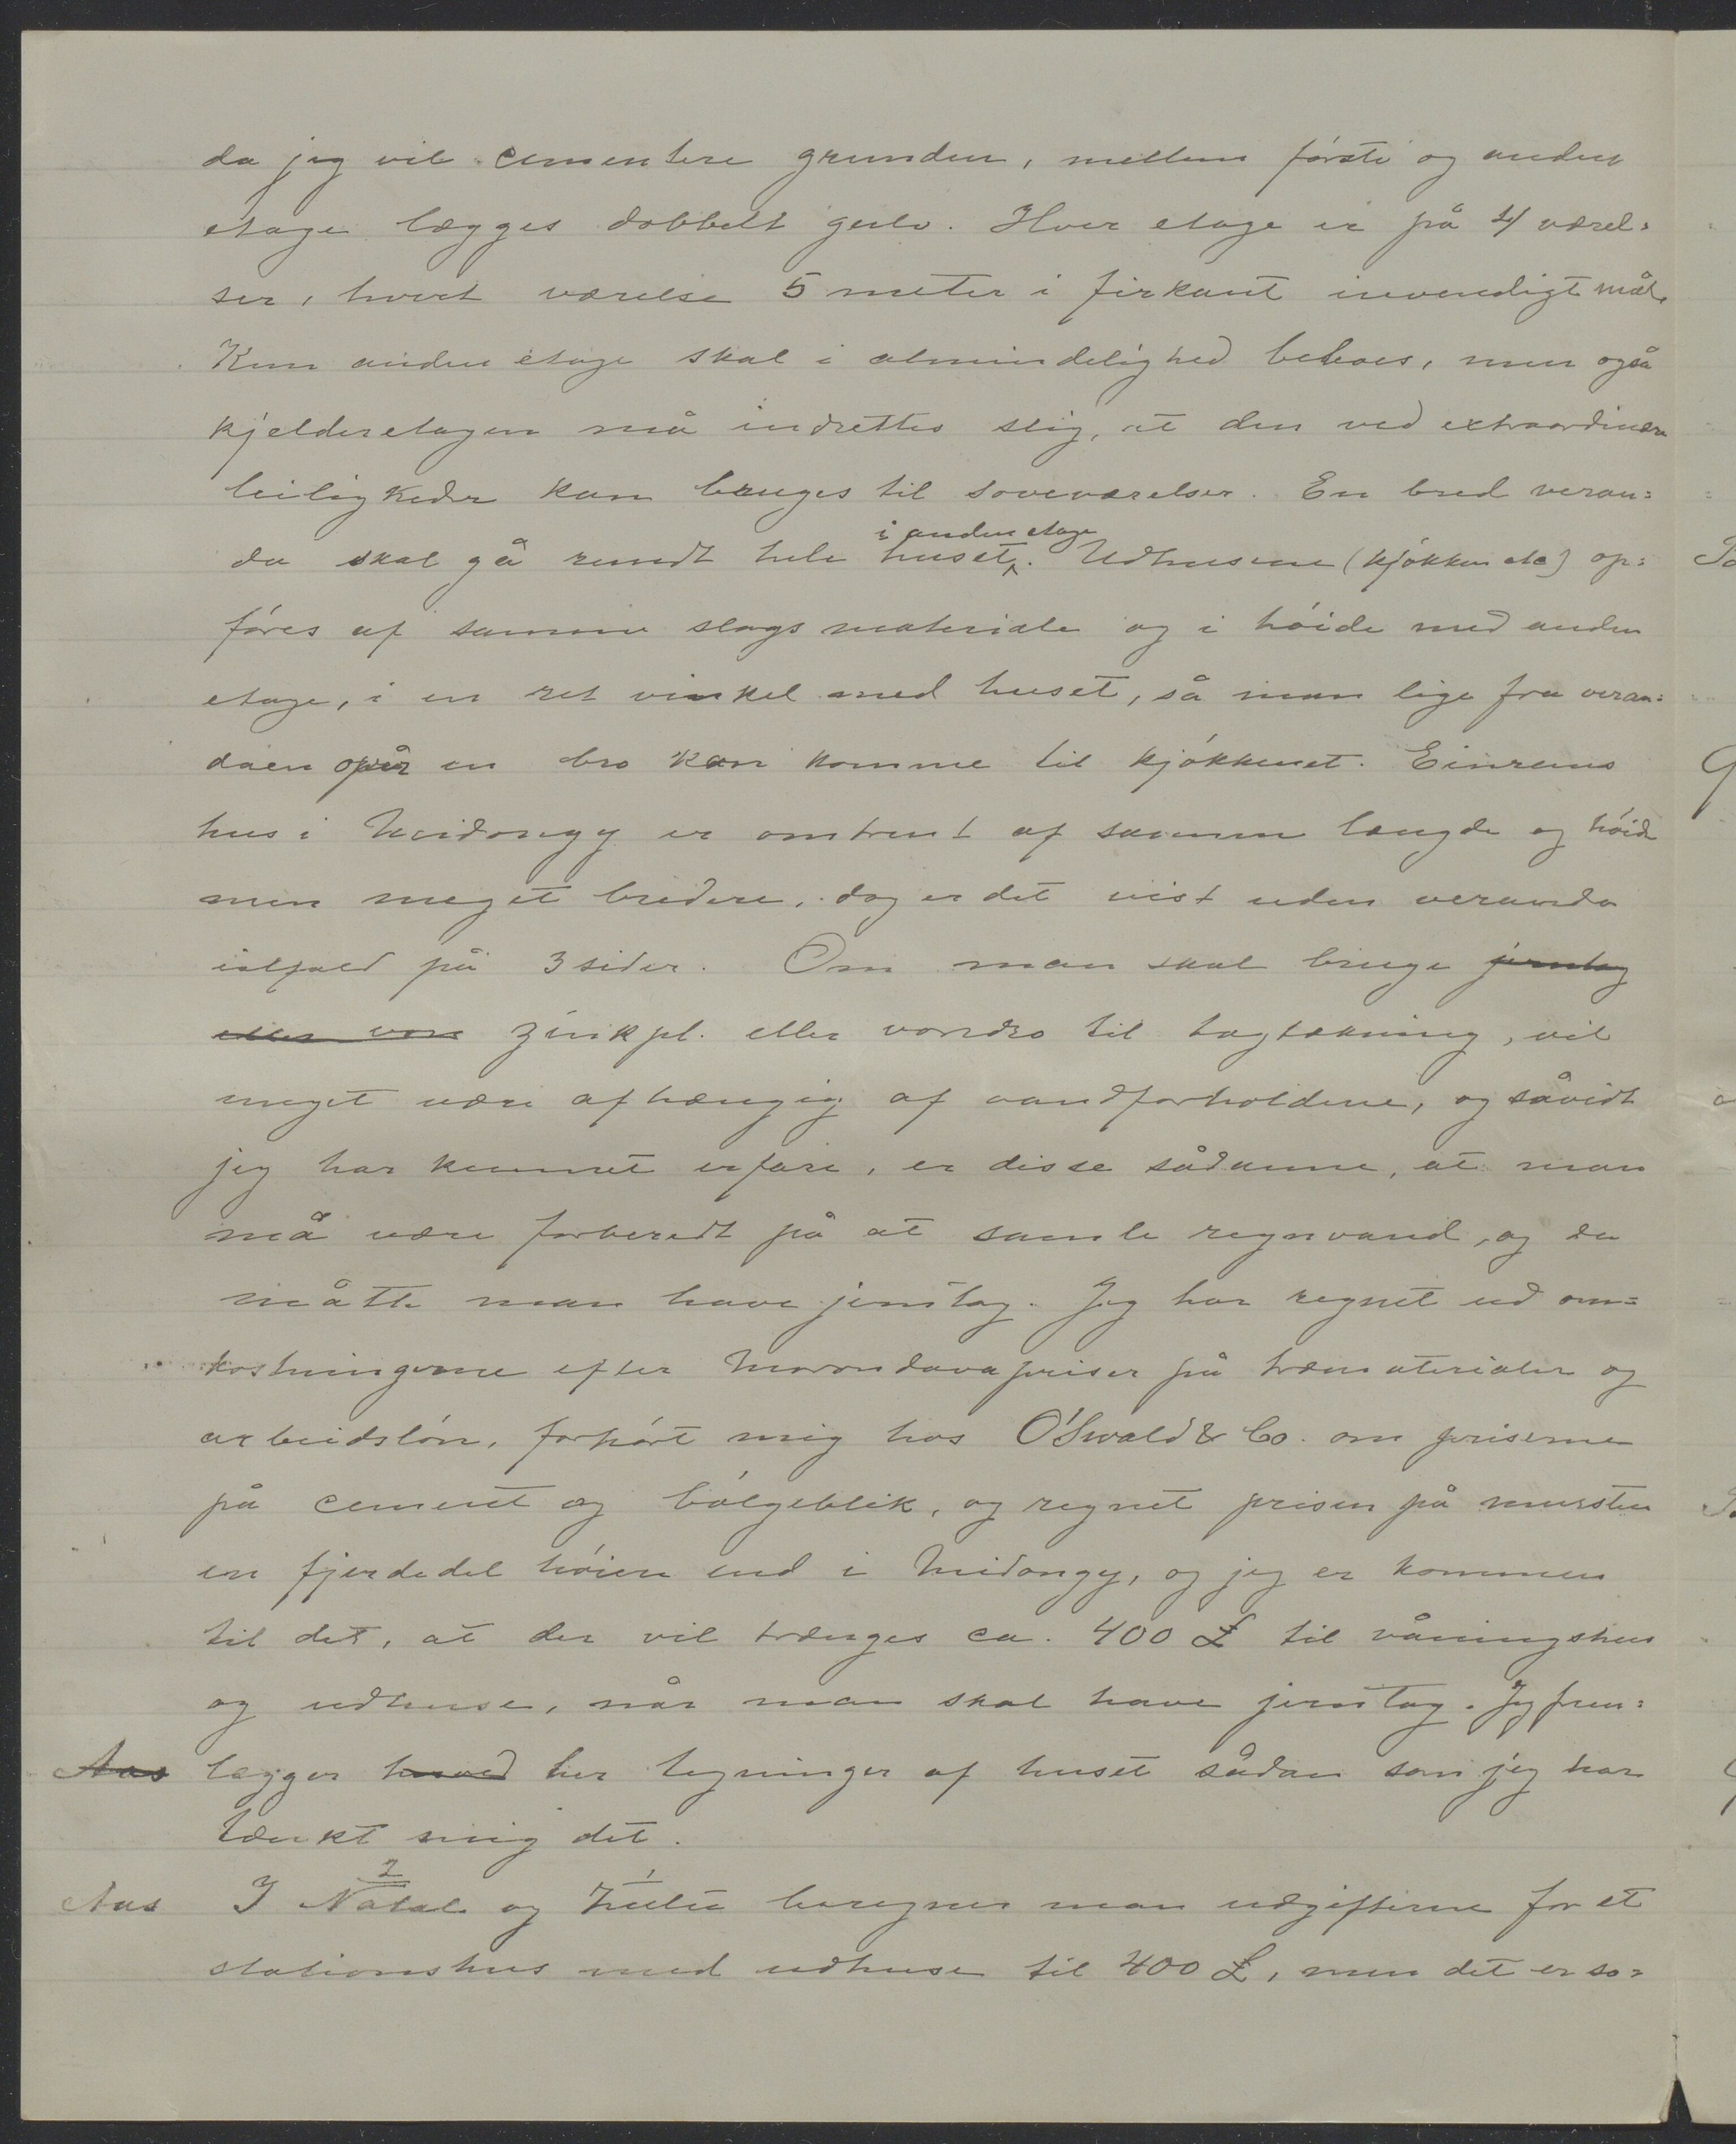 da jeg vil cementere grunden, mellem første og anden
etage lægges dobbelt gulv. Hver etage er på 4 værel=
ser, hvert værelse 5 meter i firkant invendigt mål.
Kun anden etage skal i almindelighed beboes, men også
kjelderetagen må indrettes slig, at den ved extraordinære
leiligheder kan bruges til soveværelser. En bred veran=
da skal gå rundt hele huset i anden etage. Udhusene (kjøkken etc) op=
føres af samme slags materiale og i høide med anden
etage, i en ret vinkel med huset, så man lige fra veran=
daen over en bro kan komme til kjøkkenet. Einrems
hus i Midongy er omtrent af samme længde og høide
men meget bredere, dog er det vist uden veranda
ialfald på 3 sider. Om man skal bruge jerntag
eller von zinkpl. eller vondro til tagtækning, vil
meget være afhængig af vandforholdene, og såvidt
jeg har kunnet erfare, er disse sådanne, at man
må være forberedt på at samle regnvand, og da
måtte man have jerntag. Jeg har regnet ud om=
kostningerne efter Morondavapriser på træmaterialer og
arbeidsløn, forhørt mig hos O'Swald & Co. om priserne
på cement og bølgeblik, og regnet prisen på mursten
en fjerdedel høiere end i Midongy, og jeg er kommen
til det, at der vil trænges ca. 400 £ til våningshus
og udhuse, når man skal have jerntag. Jeg frem=
Aas lægger herved her tegninger af huset sådan som jeg har
tænkt mig det.
Aas I Natal 2 og Zulu 1 beregner man udgifterne for et
stationshus med udhuse til 400 £, men det er so=